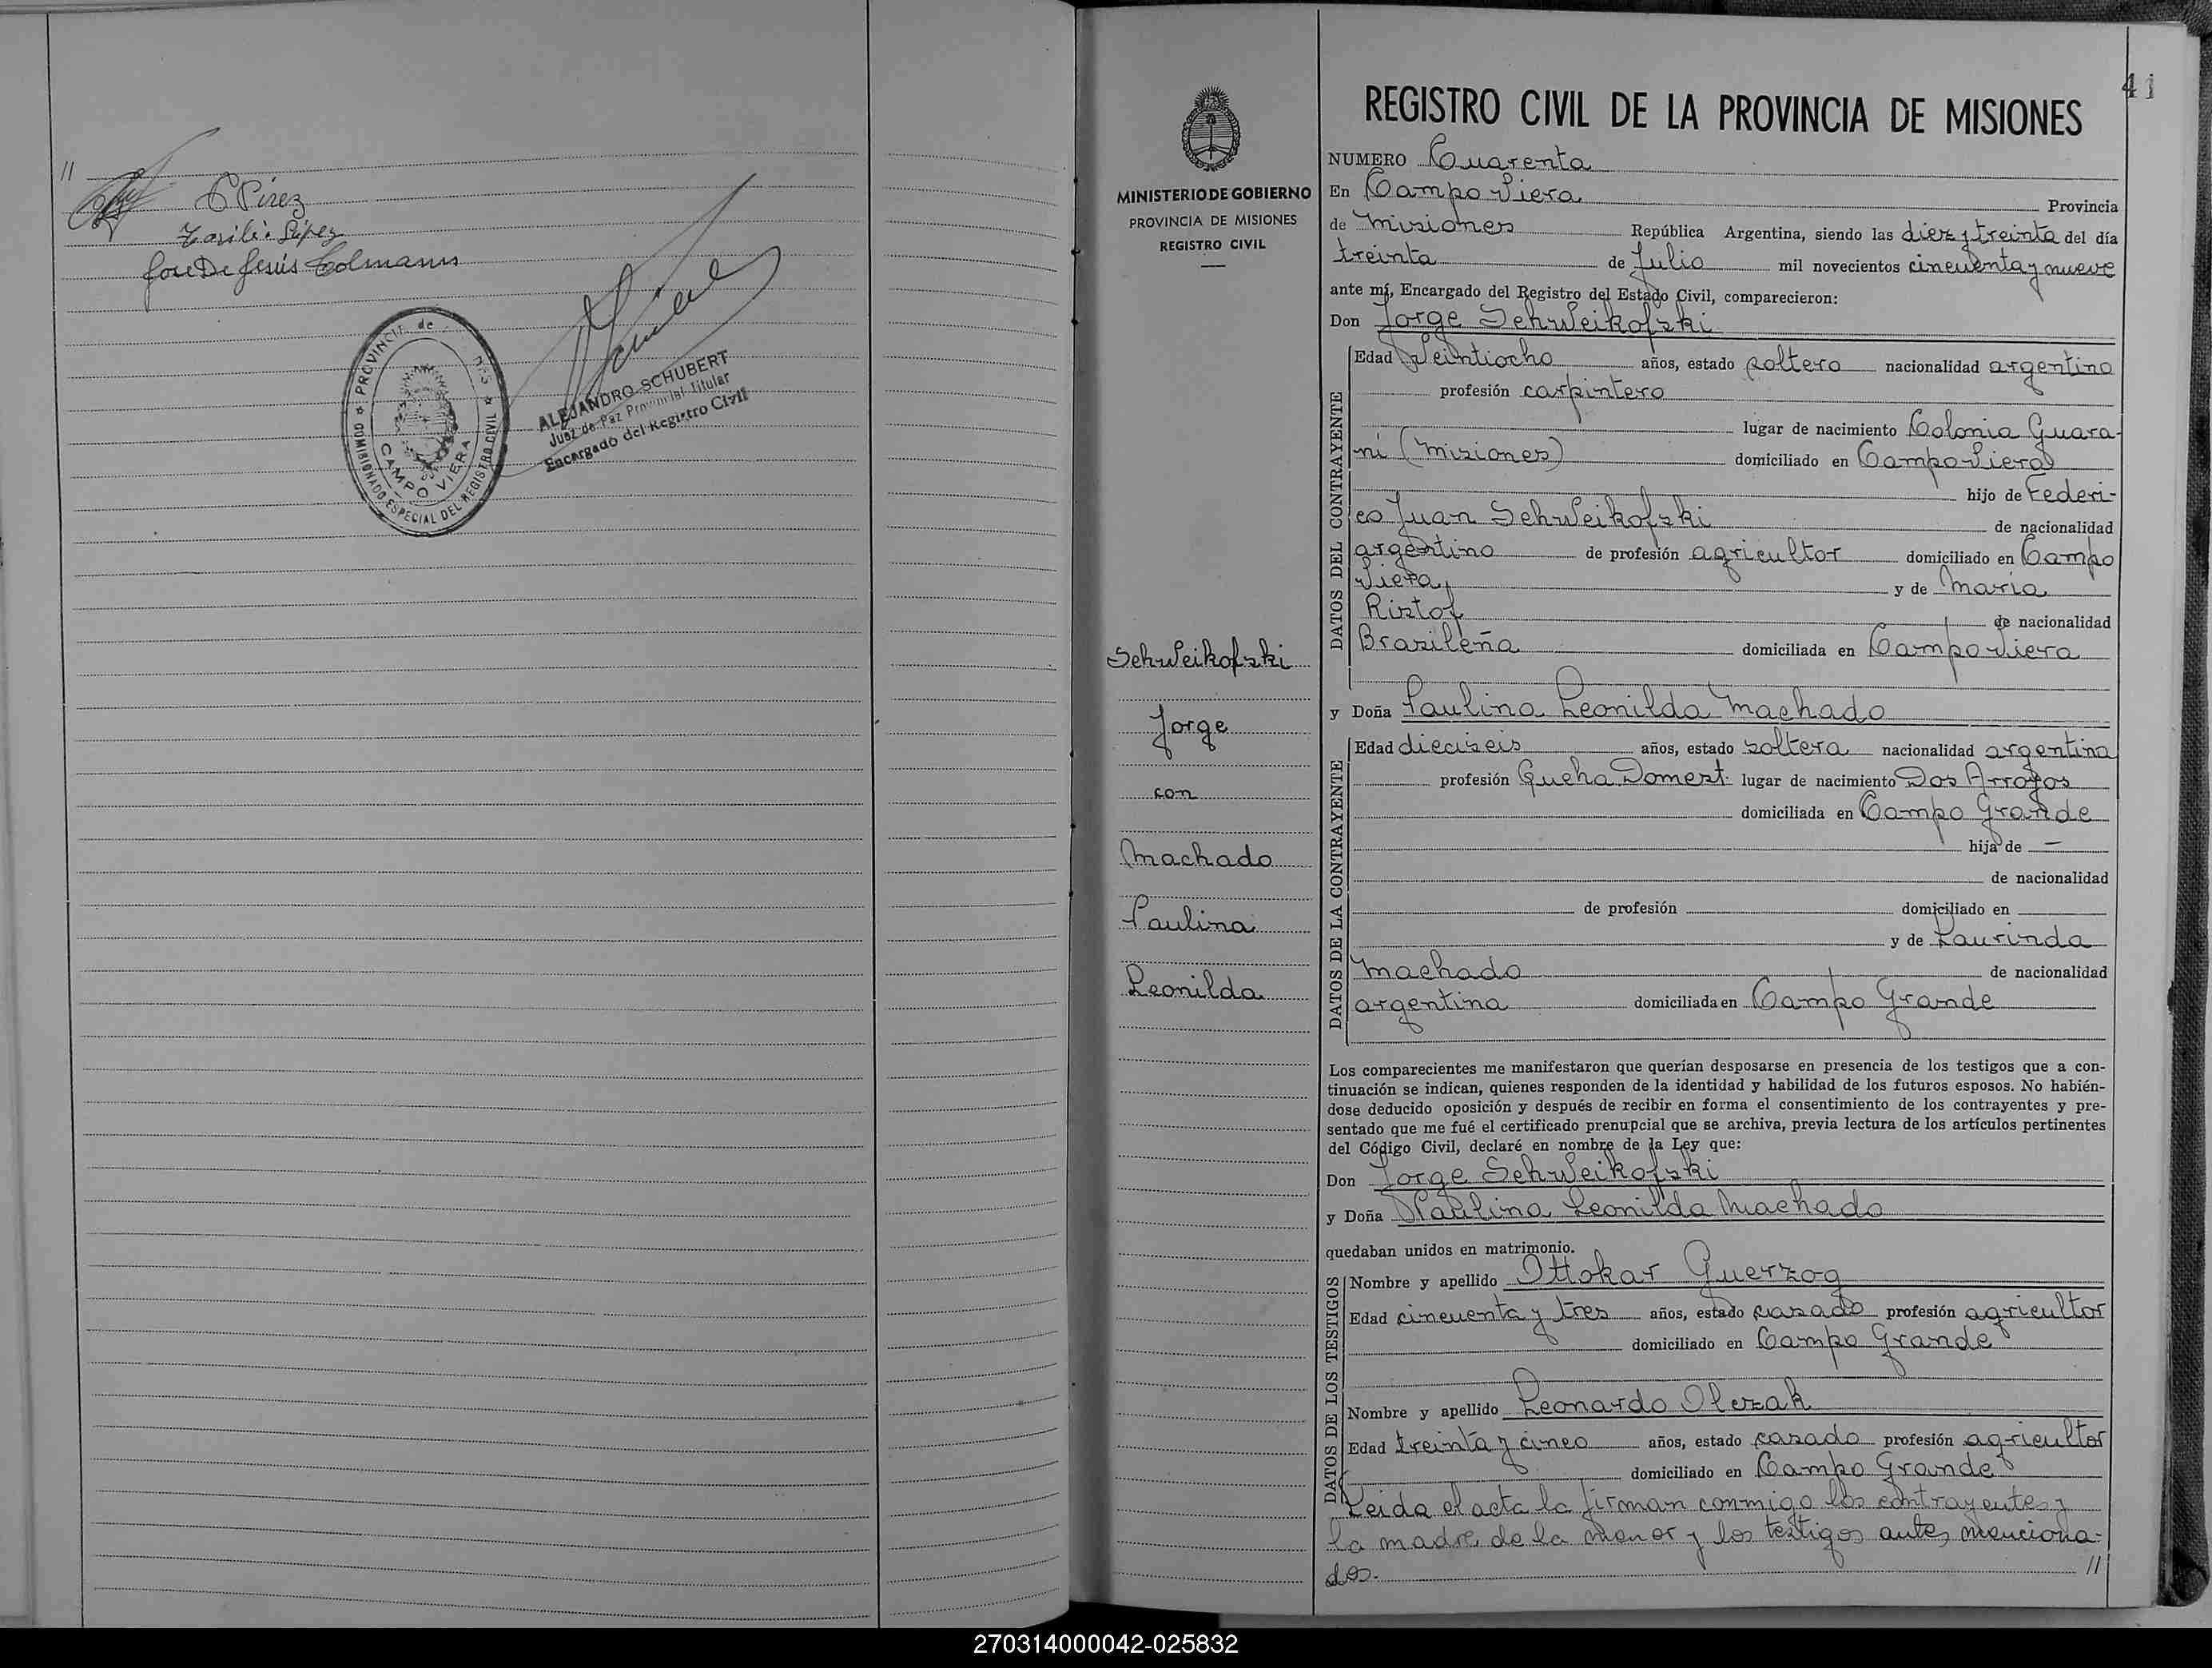 //
C Pérez
José De Jesús Colmann
PROVINCIA de
COMISIONADO ESPECIAL DEL REGISTRO CIVIL
CAMPO VIERA
ALEJANDRO SCHUBERT
Juez de Paz Provincial Titular
Encargado del Registro Civil
41
MINISTERIO DE GOBIERNO
PROVINCIA DE MISIONES
REGISTRO CIVIL
Schweikofzki
Jorge
con
Machado
Paulina
Leonilda
REGISTRO CIVIL DE LA PROVINCIA DE MISIONES
NUMERO Cuarenta
En Campo Viera Provincia
de Misiones República Argentina, siendo las diez y treinta del día
treinta de Julio mil novecientos cincuenta y nueve
ante mí, Encargado del Registro del Estado Civil, comparecieron:
Don Jorge Schweikofzki
DATOS DEL CONTRAYENTE
Edad Veintiocho años, estado soltero nacionalidad argentino
profesión carpintero
lugar de nacimiento Colonia Guara-
ní (Misiones) domiciliado en Campo Viera
hijo de Federi-
co Juan Schweikofzki de nacionalidad
argentino de profesión agricultor domiciliado en Campo
Viera, y de María
Ristof de nacionalidad
Brasileña domiciliada en Campo Viera
y Doña Paulina Leonilda Machado
DATOS DE LA CONTRAYENTE
Edad dieciseis años, estado soltera nacionalidad argentina
profesión Queha. Domest. lugar de nacimiento Dos Arroyos
domiciliada en Campo Grande
hija de —
de nacionalidad
de profesión domiciliado en
y de Laurinda
Machado de nacionalidad
argentina domiciliada en Campo Grande
Los comparecientes me manifestaron que querían desposarse en presencia de los testigos que a con-
tinuación se indican, quienes responden de la identidad y habilidad de los futuros esposos. No habién-
dose deducido oposición y después de recibir en forma el consentimiento de los contrayentes y pre-
sentado que me fué el certificado prenupcial que se archiva, previa lectura de los artículos pertinentes
del Código Civil, declaré en nombre de la Ley que:
Don Jorge Schweikofzki
y Doña Paulina Leonilda Machado
quedaban unidos en matrimonio.
DATOS DE LOS TESTIGOS
Nombre y apellido Ottokar Guerzog
Edad cincuenta y tres años, estado casado profesión agricultor
domiciliado en Campo Grande
Nombre y apellido Leonardo Olerak
Edad treinta y cinco años, estado casado profesión agricultor
domiciliado en Campo Grande
Leida el acta la firman conmigo los contrayentes y
la madre de la menor y los testigos antes menciona-
dos. //
270314000042-025832